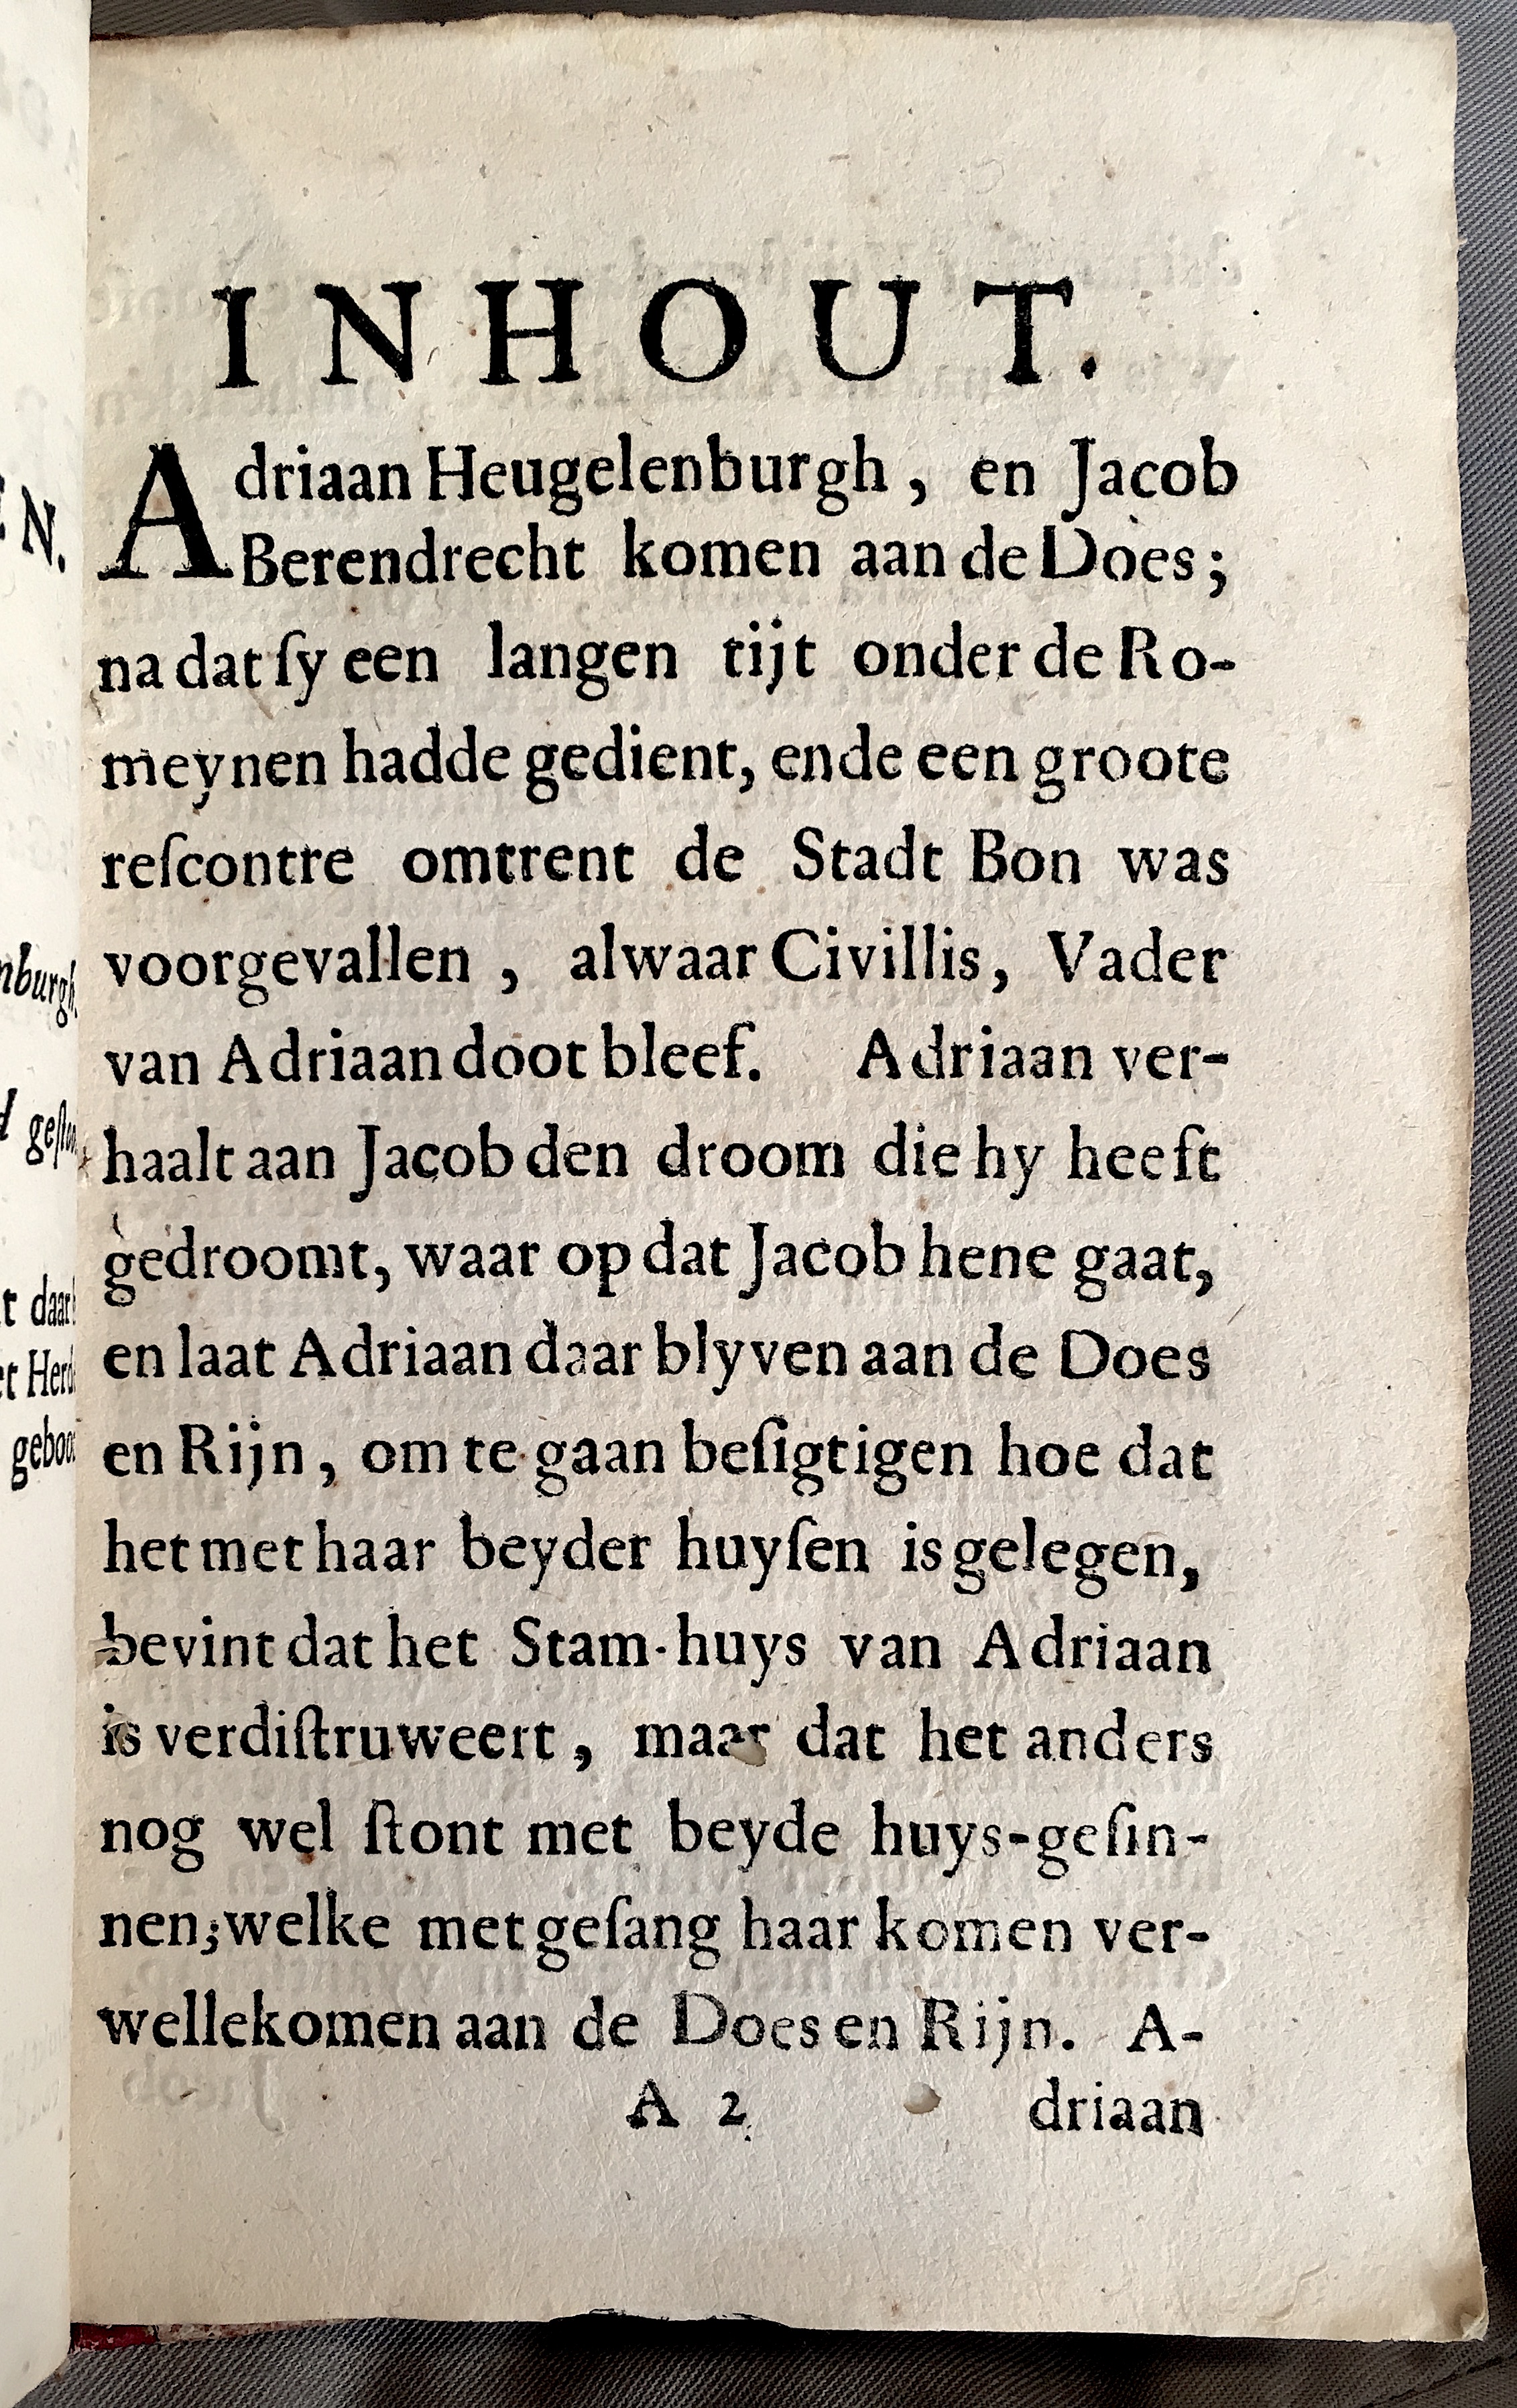 INHOUT.
Adriaan Heugelenburgh, en Jacob
Berendrecht komen aan de Does;
na dat ſy een langen tijt onder de Ro-
meynen hadde gedient, ende een groote
reſcontre omtrent de Stadt Bon was
voorgevallen, alwaar Civillis, Vader
van Adriaan doot bleef. Adriaan ver-
haalt aan Jacob den droom die hy heeft
gedroomt, waar op dat Jacob hene gaat,
en laat Adriaan daar blyven aan de Does
en Rijn, om te gaan beſigtigen hoe dat
het met haar beyder huyſen is gelegen,
bevint dat het Stam-huys van Adriaan
is verdiſtruweert, maar dat het anders
nog wel ſtont met beyde huys-geſin-
nen; welke met geſang haar komen ver-
wellekomen aan de Does en Rijn. A-
A 2
driaan